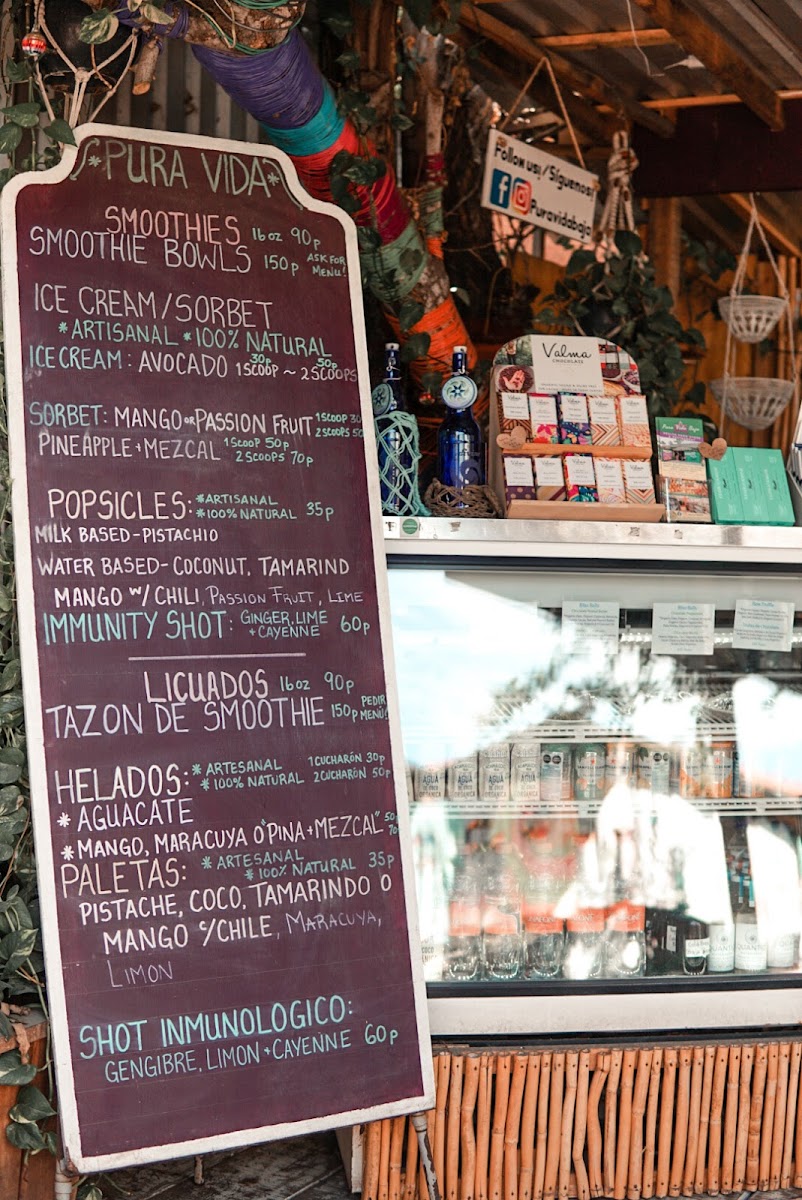 PURA VIDA
SMOOTHIES 16oz 90p
SMOOTHIE BOWLS 150p ASK FOR MENU!
ICE CREAM/SORBET
*ARTISANAL *100% NATURAL
ICE CREAM: AVOCADO 30p 1SCOOP ~ 50p 2SCOOPS
SORBET: MANGO or PASSION FRUIT 1SCOOP 30
2SCOOPS 50
PINEAPPLE + MEZCAL 1SCOOP 50p
2SCOOPS 70p
POPSICLES: *ARTISANAL
*100% NATURAL 35p
MILK BASED - PISTACHIO
WATER BASED - COCONUT, TAMARIND
MANGO W/ CHILI, PASSION FRUIT, LIME
IMMUNITY SHOT: GINGER, LIME
+ CAYENNE 60p
LICUADOS 16oz 90p
TAZON DE SMOOTHIE 150p PEDIR MENÚ!
HELADOS: *ARTESANAL 1CUCHARÓN 30p
*100% NATURAL 2CUCHARÓN 50p
*AGUACATE
*MANGO, MARACUYA O "PINA + MEZCAL" 50
70
PALETAS: *ARTESANAL
*100% NATURAL 35p
PISTACHE, COCO, TAMARINDO O
MANGO c/CHILE, MARACUYA,
LIMON
SHOT INMUNOLOGICO:
GENGIBRE, LIMON + CAYENNE 60p
Follow us!/Síguenos!
f
Puravidabaja
Valma
CHOCOLATE
AGUA